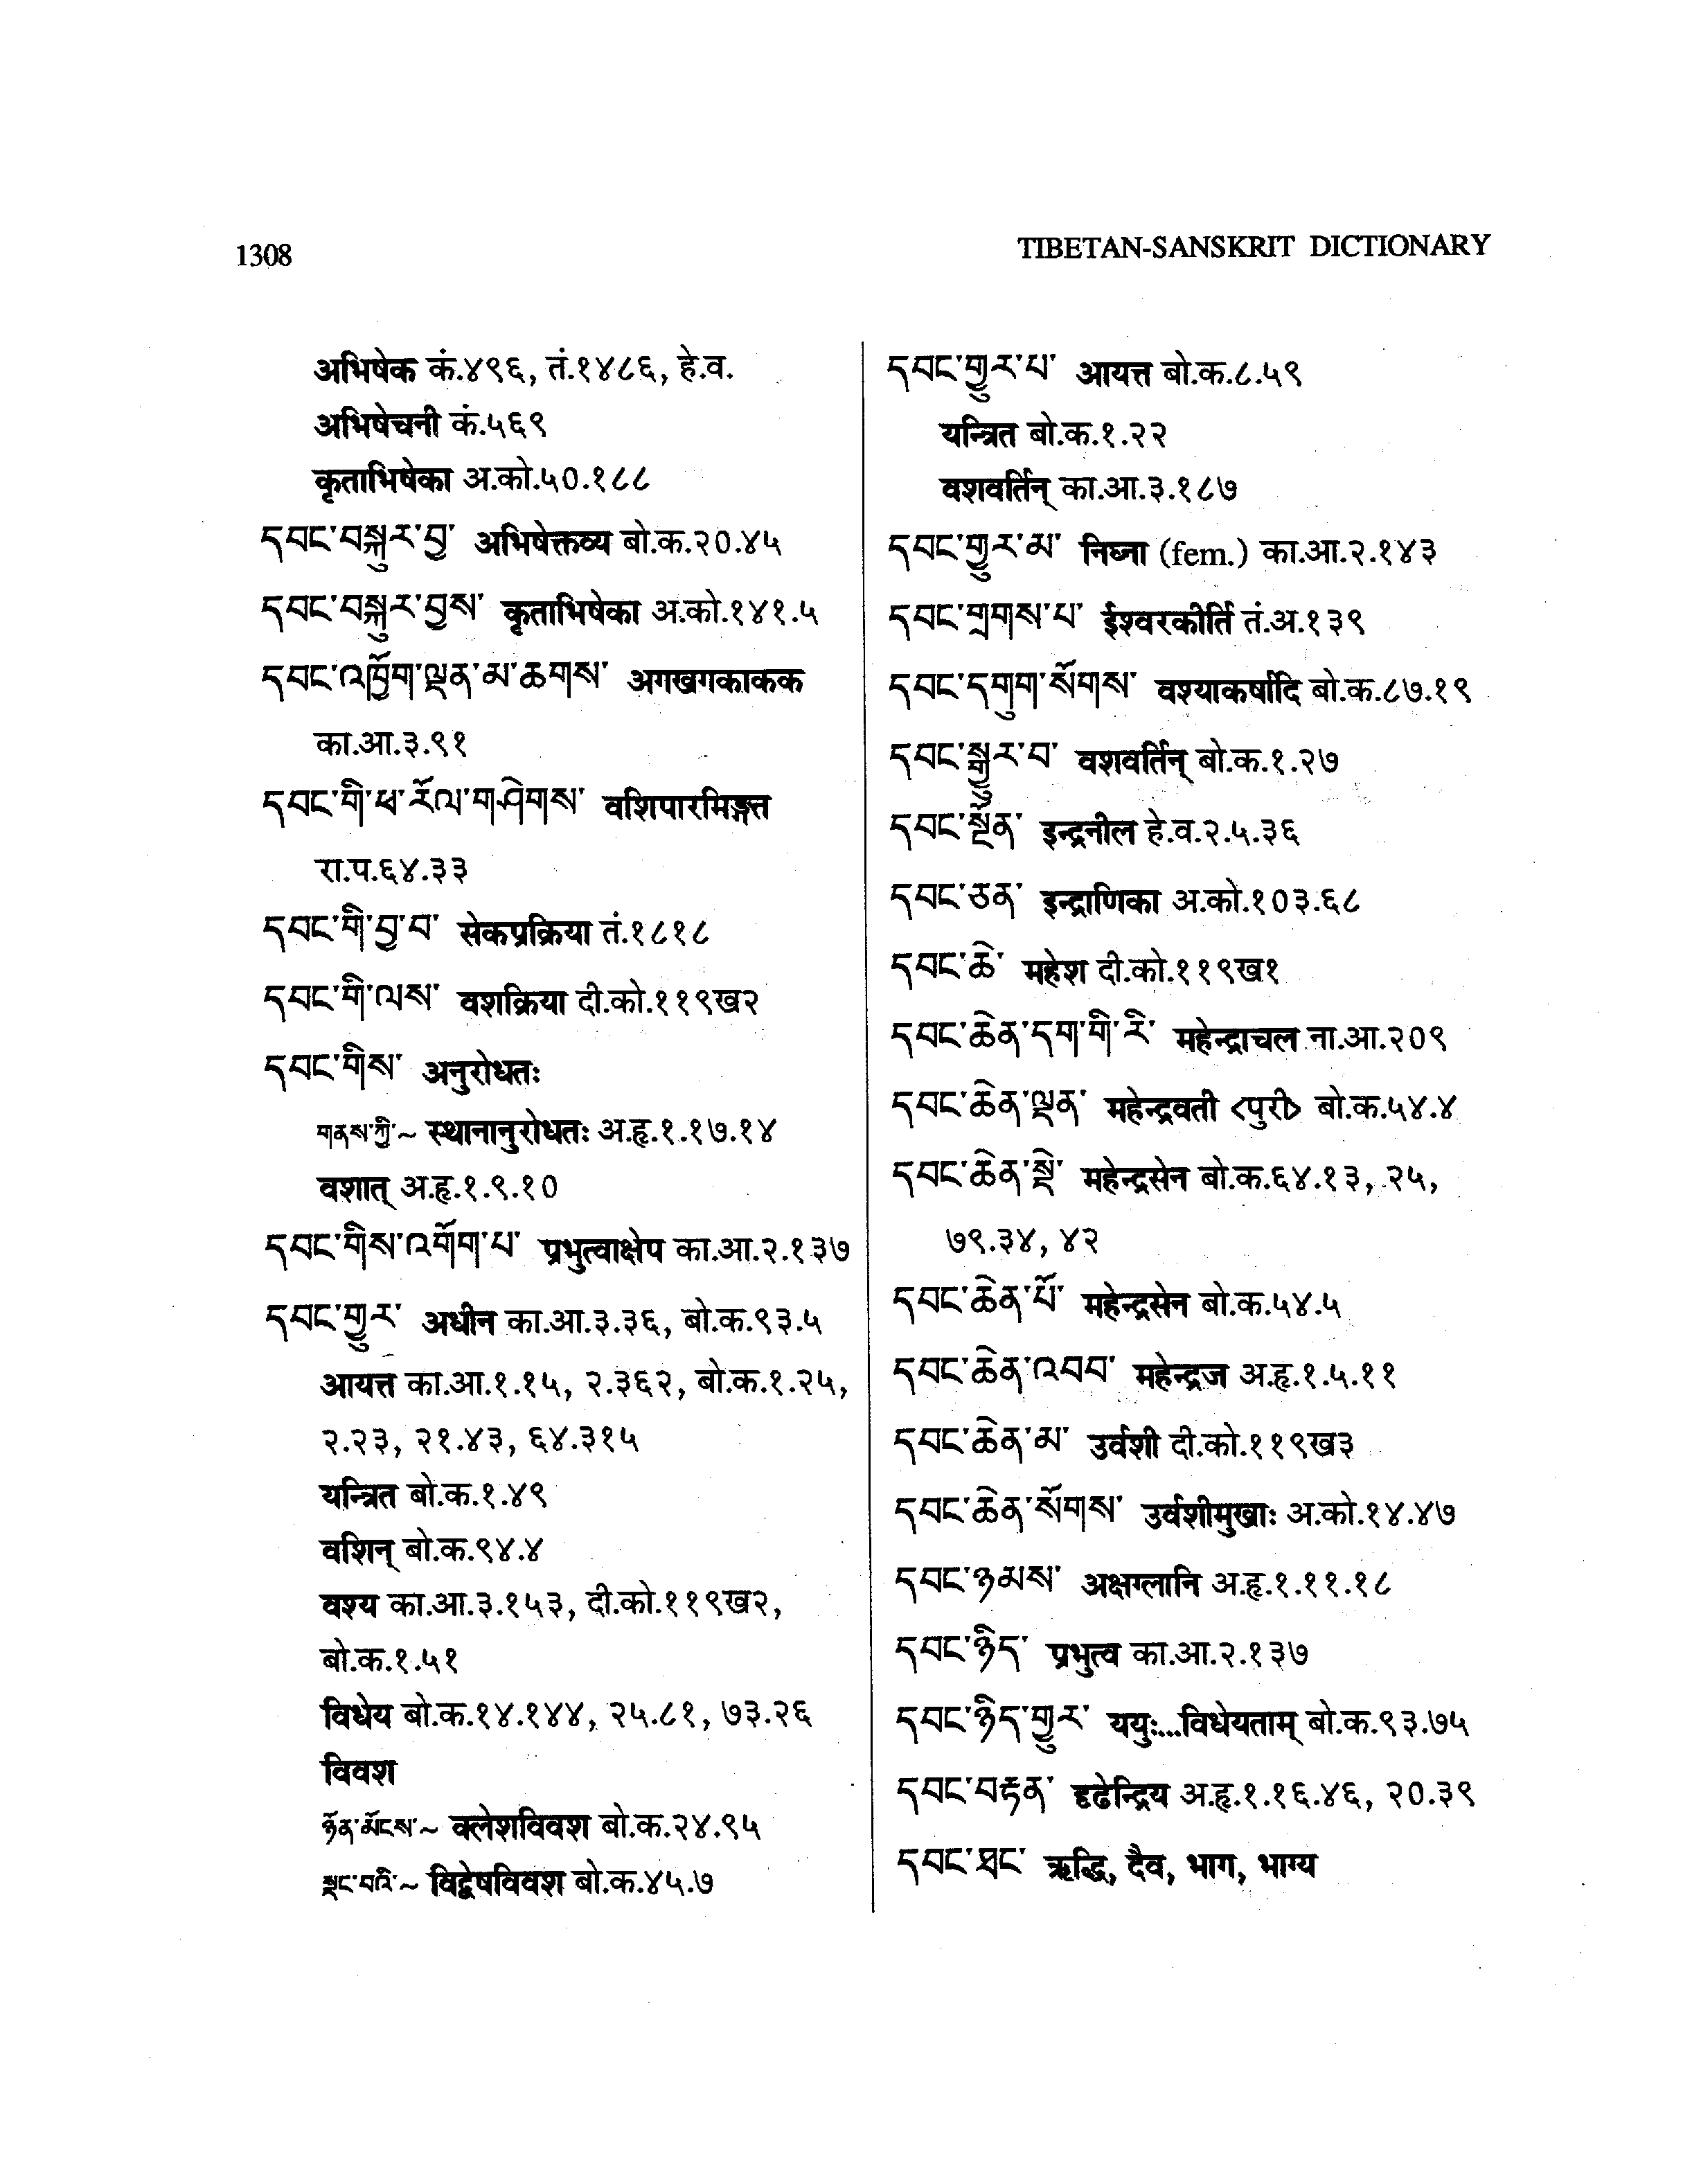 1308
TIBETAN-SANSKRIT DICTIONARY
अभिषेक कं.४९६, तं.१४८६, हे.व.
अभिषेचनी कं.५६९
कृताभिषेका अ.को.५०.१८८
དབང་བསྐུར་བྱ་ अभिषेक्तव्य बो.क.२०.४५
དབང་བསྐུར་བྱས་ कृताभिषेका अ.को.१४१.५
དབང་འཁྱོག་ལྡན་མ་ཆགས་ अगखगकाकक
का.आ.३.९१
དབང་གི་ཕ་རོལ་གཤེགས་ वशिपारमिङ्गत
रा.प.६४.३३
དབང་གི་བྱ་བ་ सेकप्रक्रिया तं.१८१८
དབང་གི་ལས་ वशक्रिया दी.को.११९ख२
དབང་གིས་ अनुरोधतः
གནས་ཀྱི་~ स्थानानुरोधतः अ.हृ.१.१७.१४
वशात् अ.हृ.१.९.१०
དབང་གིས་འགོག་པ་ प्रभुत्वाक्षेप का.आ.२.१३७
དབང་གྱུར་ अधीन का.आ.३.३६, बो.क.९३.५
आयत्त का.आ.१.१५, २.३६२, बो.क.१.२५,
२.२३, २१.४३, ६४.३१५
यन्त्रित बो.क.१.४९
वशिन् बो.क.९४.४
वश्य का.आ.३.१५३, दी.को.११९ख२,
बो.क.१.५१
विधेय बो.क.१४.१४४, २५.८१, ७३.२६
विवश
ཉོན་མོངས་~ क्लेशविवश बो.क.२४.९५
སྡང་བའི་~ विद्वेषविवश बो.क.४५.७
དབང་གྱུར་པ་ आयत्त बो.क.८.५९
यन्त्रित बो.क.१.२२
वशवर्तिन् का.आ.३.१८७
དབང་གྱུར་མ་ निघ्ना (fem.) का.आ.२.१४३
དབང་གྲགས་པ་ ईश्वरकीर्ति तं.अ.१३९
དབང་དགུག་སོགས་ वश्याकर्षादि बो.क.८७.१९
དབང་སྒྱུར་བ་ वशवर्तिन् बो.क.१.२७
དབང་སྔོན་ इन्द्रनील हे.व.२.५.३६
དབང་ཅན་ इन्द्राणिका अ.को.१०३.६८
དབང་ཆེ་ महेश दी.को.११९ख१
དབང་ཆེན་དག་གི་རི་ महेन्द्राचल ना.आ.२०९
དབང་ཆེན་ལྡན་ महेन्द्रवती <पुरी> बो.क.५४.४
དབང་ཆེན་སྡེ་ महेन्द्रसेन बो.क.६४.१३, २५,
७९.३४, ४२
དབང་ཆེན་པོ་ महेन्द्रसेन बो.क.५४.५
དབང་ཆེན་འབབ་ महेन्द्रज अ.हृ.१.५.११
དབང་ཆེན་མ་ उर्वशी दी.को.११९ख३
དབང་ཆེན་སོགས་ उर्वशीमुखाः अ.को.१४.४७
དབང་ཉམས་ अक्षग्लानि अ.हृ.१.११.१८
དབང་ཉིད་ प्रभुत्व का.आ.२.१३७
དབང་ཉིད་གྱུར་ ययुः...विधेयताम् बो.क.९३.७५
དབང་བརྟན་ दृढेन्द्रिय अ.हृ.१.१६.४६, २०.३९
དབང་ཐང་ ऋद्धि, दैव, भाग, भाग्य